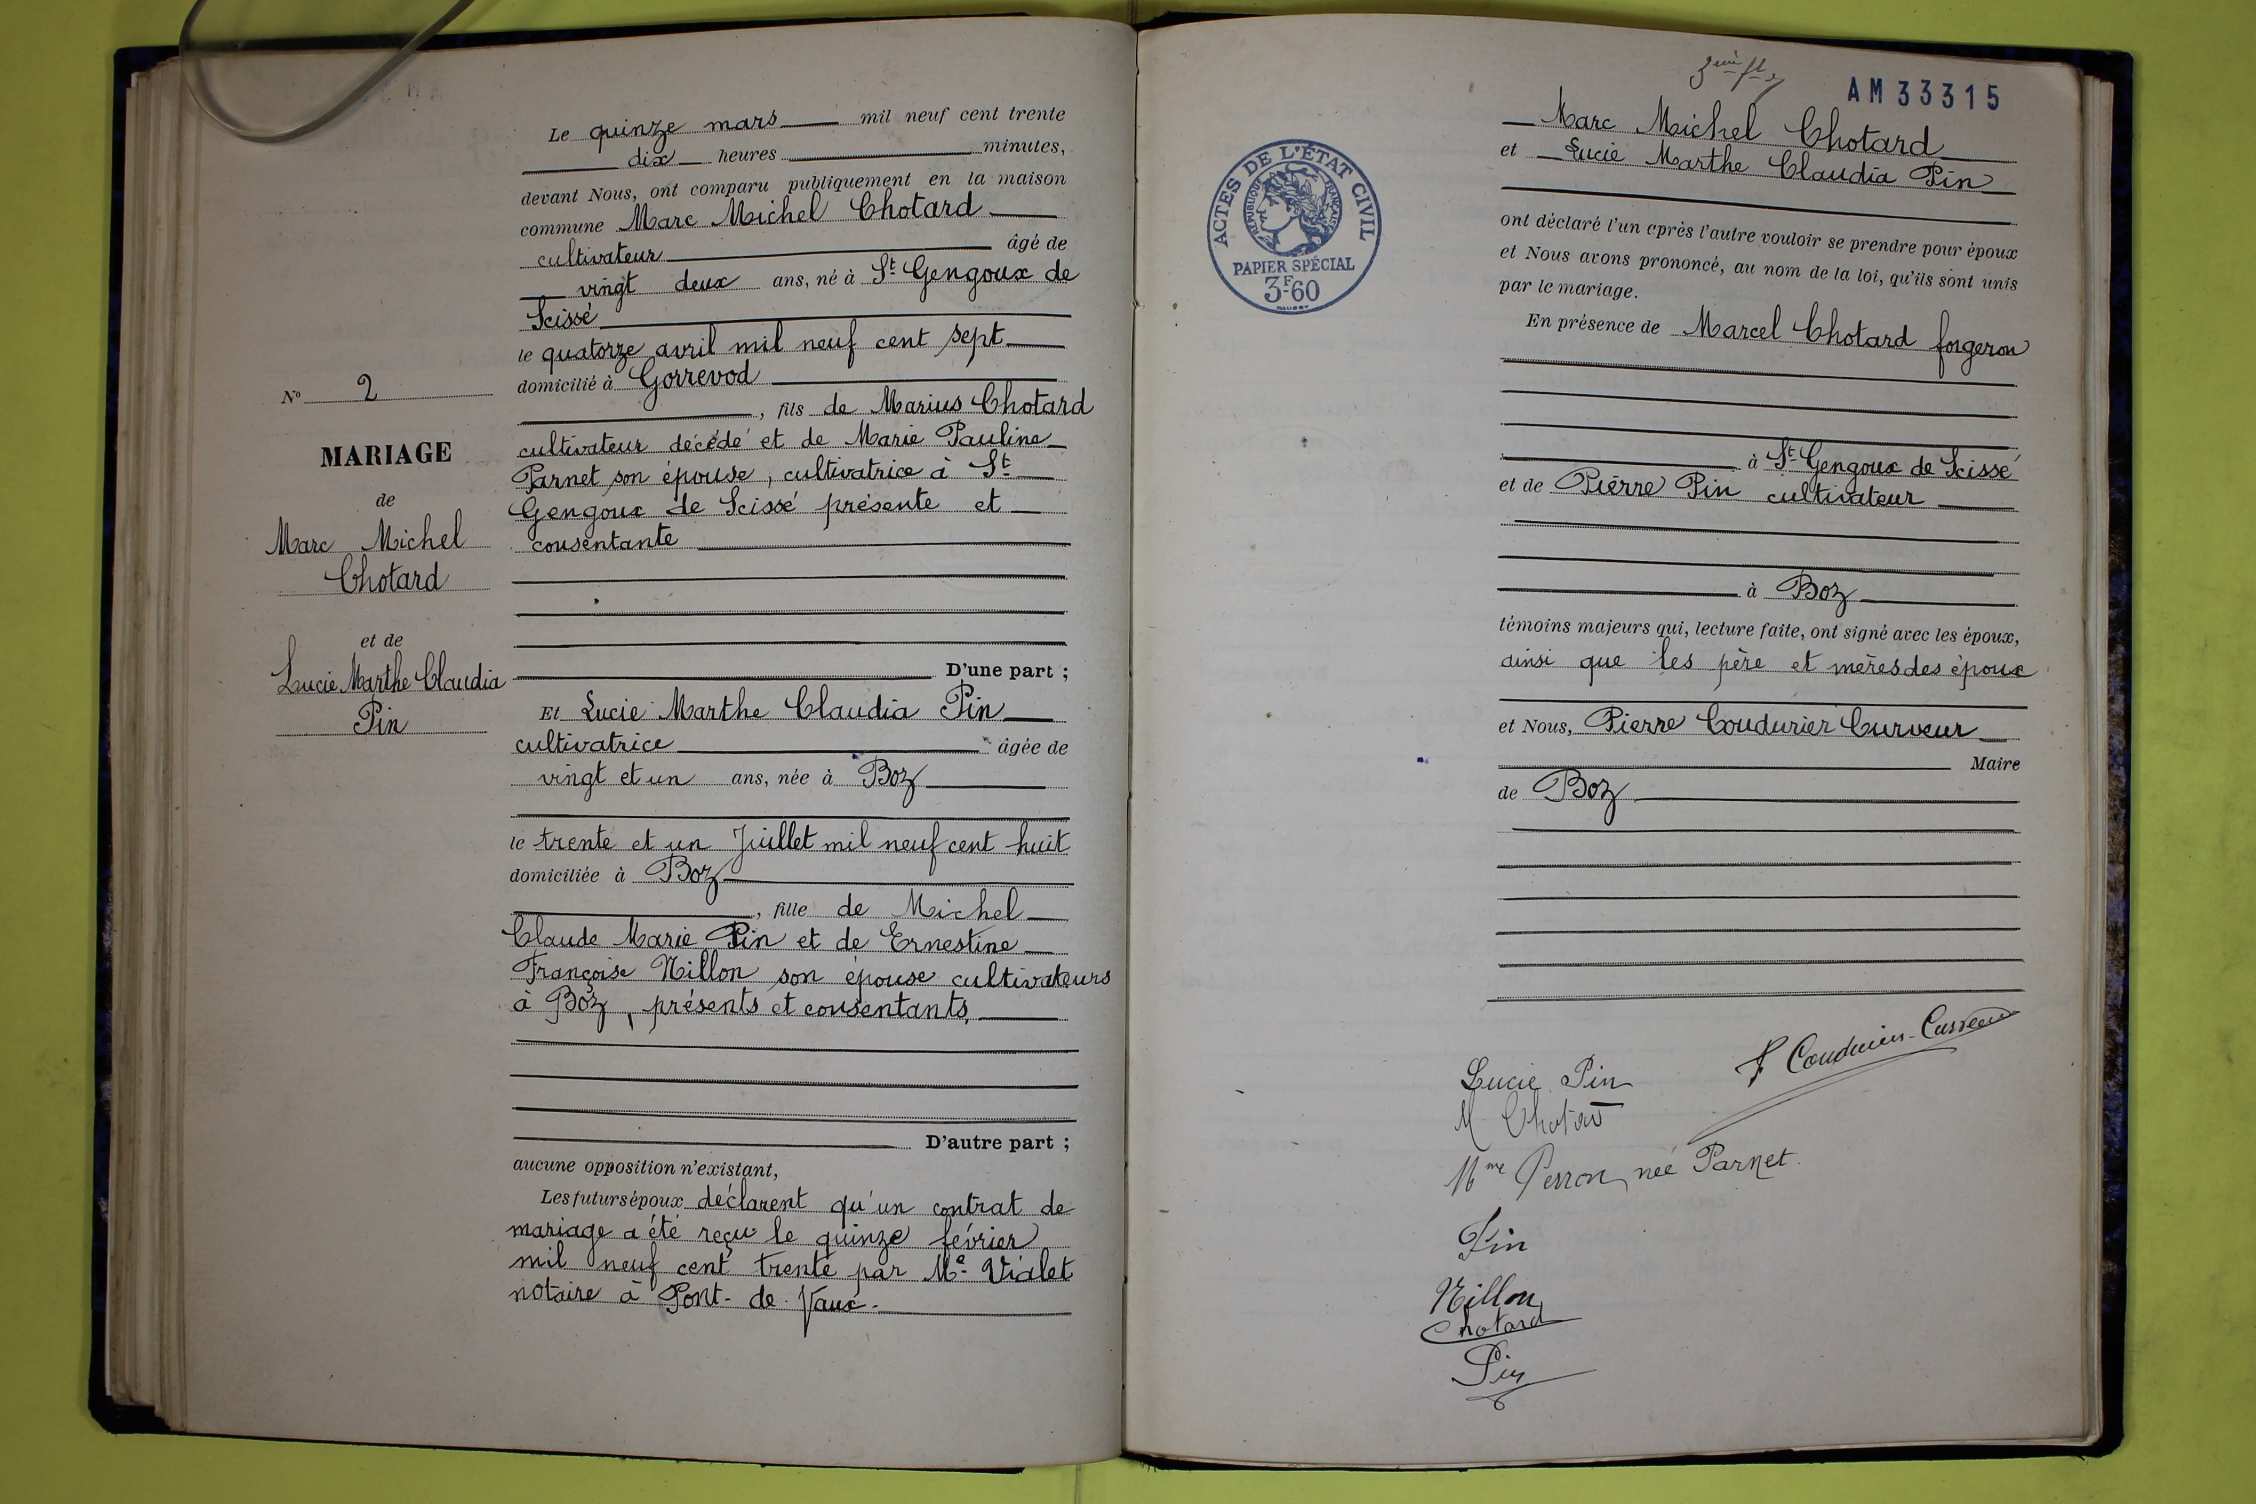 Le quinze mars mil neuf cent trente
dix heures minutes,
devant Nous, ont comparu publiquement en la maison
commune Marc Michel Chotard
cultivateur âgé de
vingt deux ans, né à St Gengoux de
Scissé
le quatorze avril mil neuf cent sept
domicilié à Gorrevod
, fils de Marius Chotard
cultivateur décédé et de Marie Pauline
Parnet son épouse, cultivatrice à St
Gengoux de Scissé présente et
consentante
D'une part ;
Et Lucie Marthe Claudia Pin
cultivatrice âgée de
vingt et un ans, née à Boz
le trente et un Juillet mil neuf cent huit
domiciliée à Boz
, fille de Michel
Claude Marie Pin et de Ernestine
Françoise Nillon son épouse cultivateurs
à Boz, présents et consentants,
D'autre part ;
aucune opposition n'existant,
Les futurs époux déclarent qu'un contrat de
mariage a été reçu le quinze février
mil neuf cent trente par Me Vialet
notaire à Pont-de-Vaux.
No 2
MARIAGE
de
Marc Michel
Chotard
et de
Lucie Marthe Claudia
Pin
AM33315
ACTES DE L'ÉTAT CIVIL
RÉPUBLIQUE FRANÇAISE
PAPIER SPÉCIAL
3F60
Marc Michel Chotard
et Lucie Marthe Claudia Pin
ont déclaré l'un après l'autre vouloir se prendre pour époux
et Nous avons prononcé, au nom de la loi, qu'ils sont unis
par le mariage.
En présence de Marcel Chotard forgeron
à St Gengoux de Scissé
et de Pierre Pin cultivateur
à Boz
témoins majeurs qui, lecture faite, ont signé avec les époux,
ainsi que les père et mères des époux
et Nous, Pierre Coudurier Curveur
Maire
de Boz
P Coudurier-Curveur
Lucie Pin
M Chotard
Mme Perron née Parnet.
Pin
Nillon
Chotard
Pin